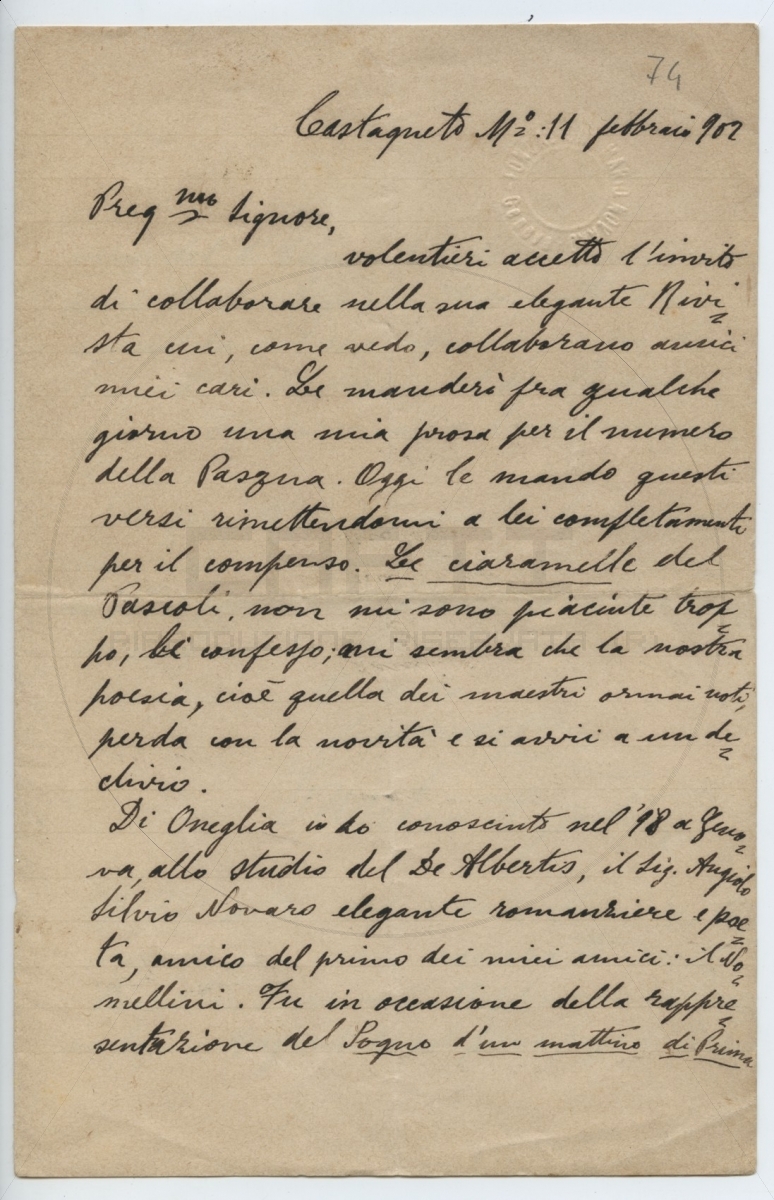 74
Castagneto Mº: 11 febbraio 902
Preg mo Signore,
volentieri accetto l'invito
di collaborare nella sua elegante Rivi=
sta cui, come vedo, collaborano amici
miei cari. Le manderò fra qualche
giorno una mia prosa per il numero
della Pasqua. Oggi le mando questi
versi rimettendomi a lei completamente
per il compenso. Le ciaramelle del
Pascoli, non mi sono piaciute trop=
po, confesso; mi sembra che la nostra
poesia, cioè quella dei maestri ormai noti,
perda con la novità e si avvii a un de=
clivio.
Di Oneglia io ho conosciuto nel '98 a Geno=
va, allo studio del De Albertis, il Sig. Angiolo
Silvio Novaro elegante romanziere e poe=
ta, amico del primo dei miei amici: il No=
mellini. Fu in occasione della rappre=
sentazione del Sogno d'un mattino di Prima